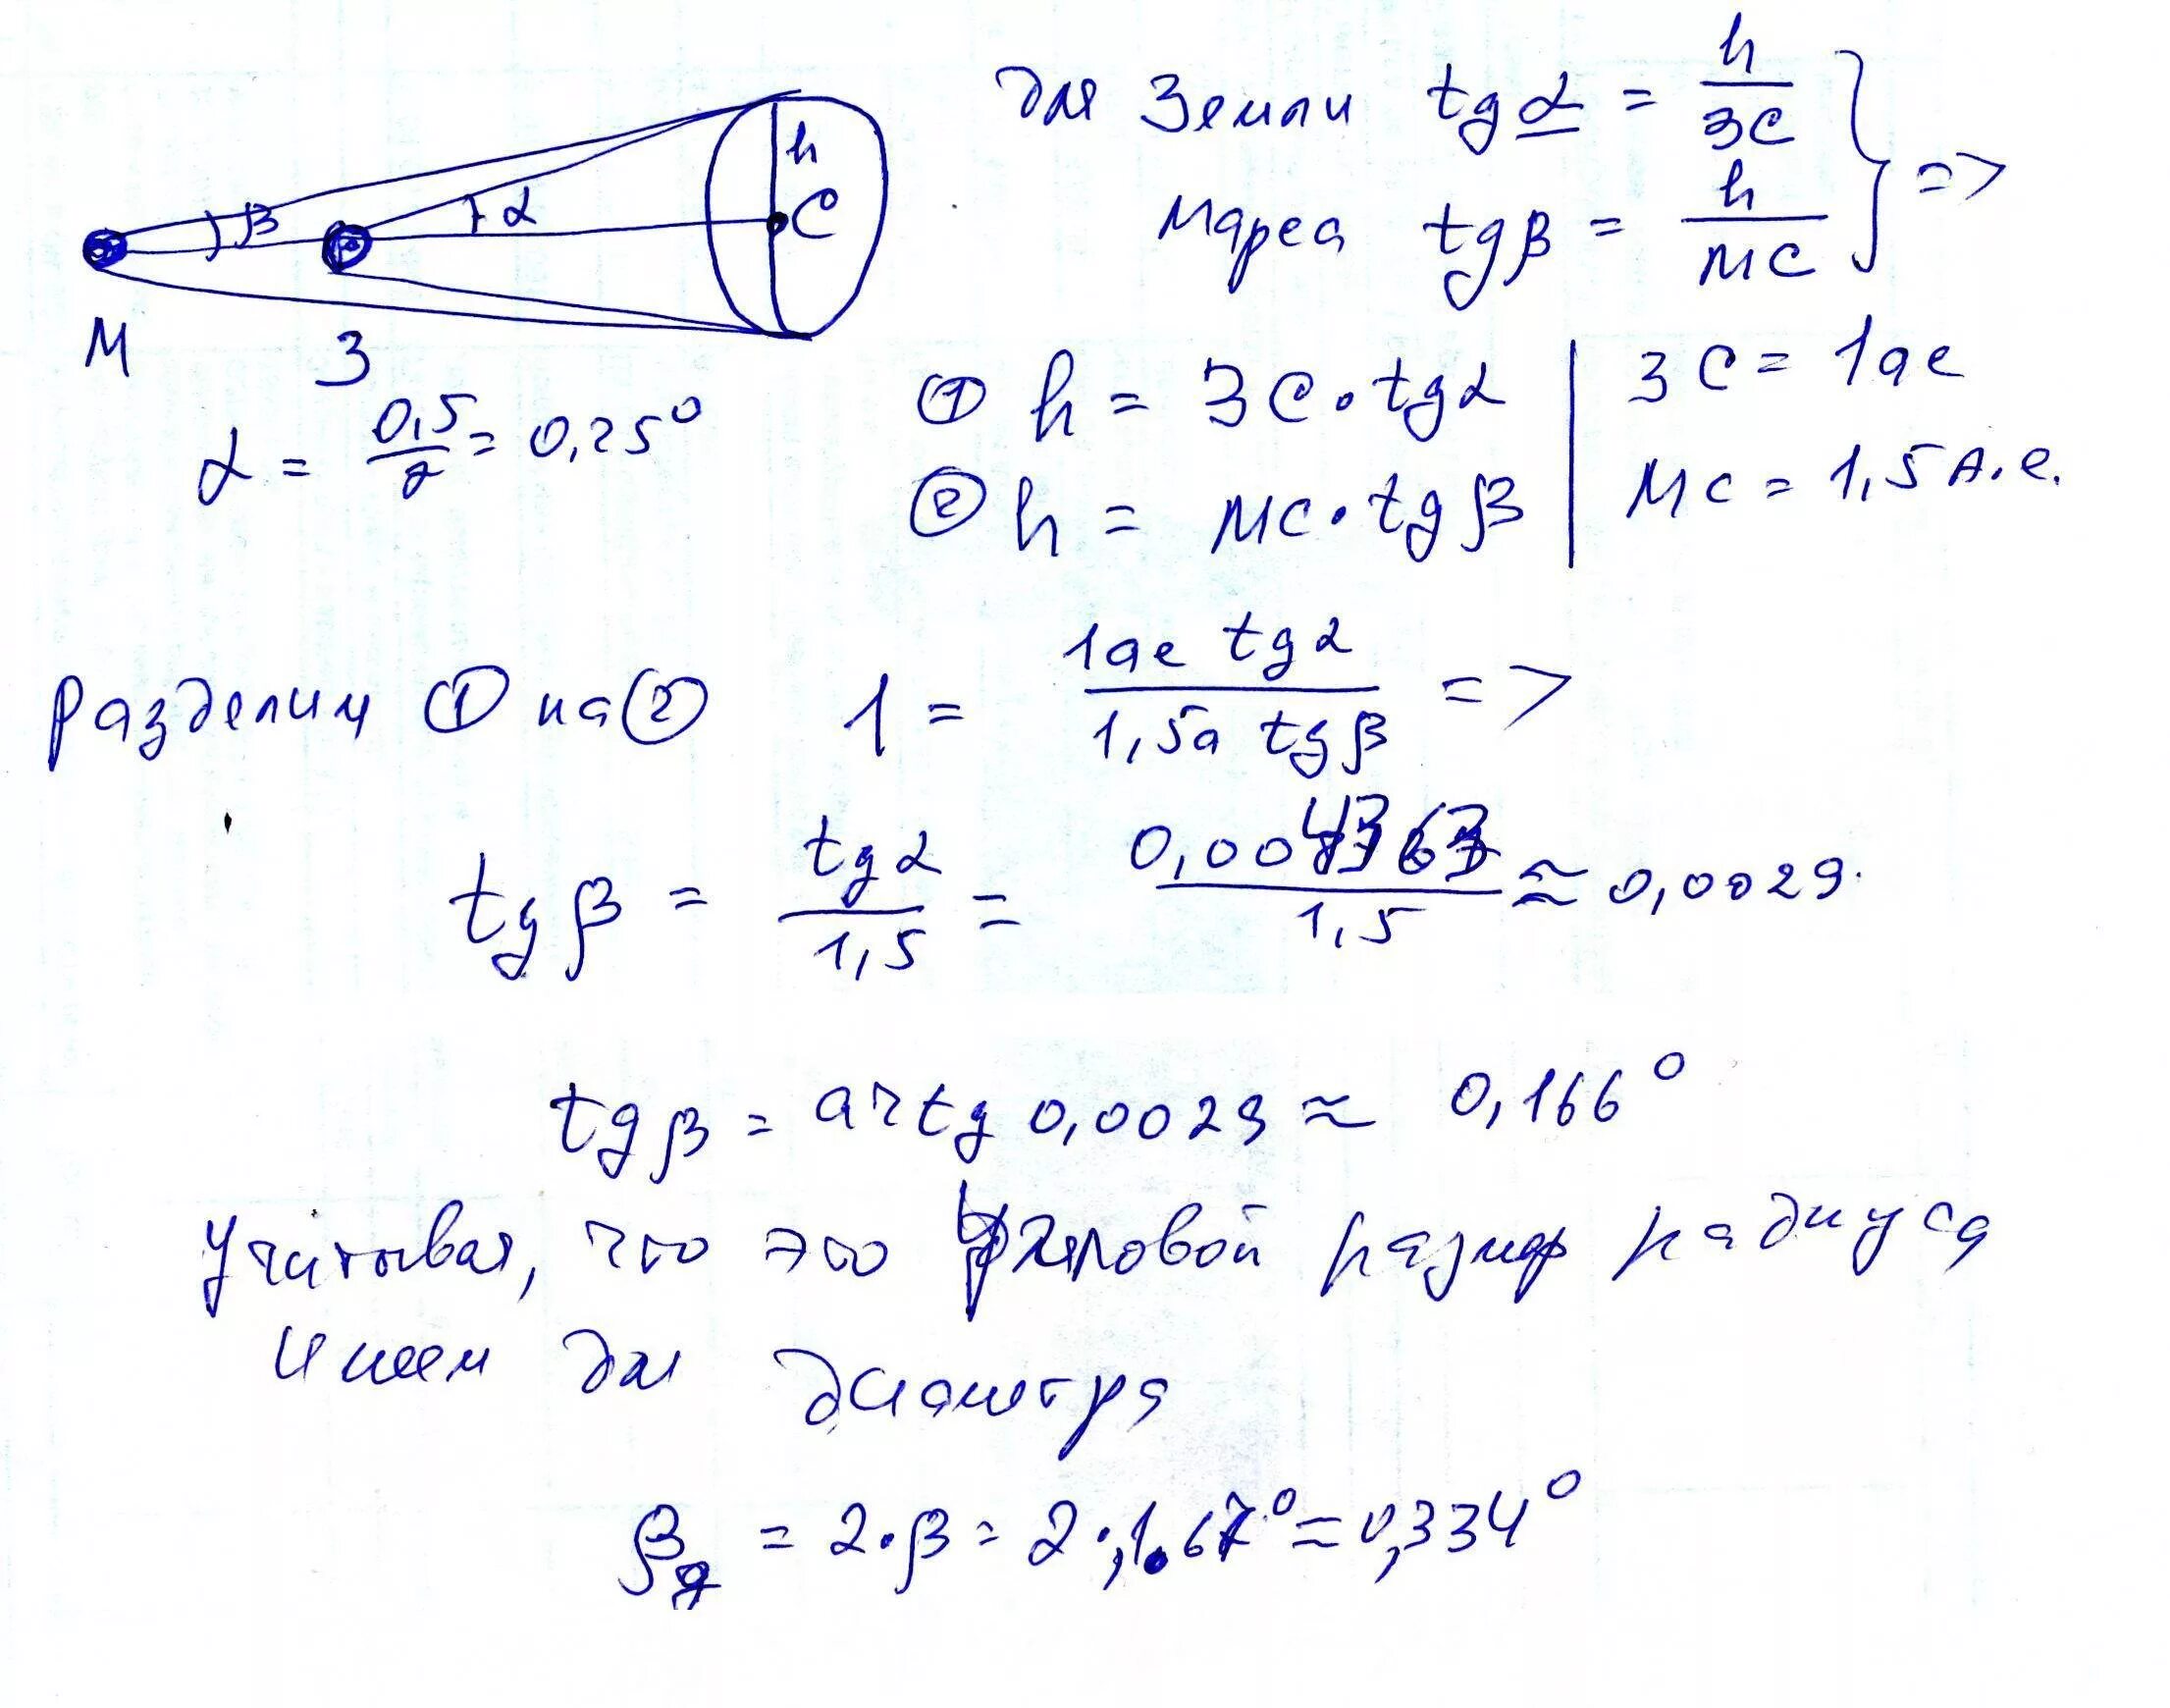 для Земли tg α = h / ЗС
Марса tg β = h / МС } =>
β α h С
М З
α = 0,5 / 2 = 0,25°
① h = ЗС · tg α | ЗС = 1 ае
② h = МС · tg β | МС = 1,5 А.е.
Разделим ① на ② 1 = 1ае tg α / 1,5а tg β =>
tg β = tg α / 1,5 = 0,004363 / 1,5 ≈ 0,0029.
tg β = arctg 0,0029 ≈ 0,166°
Учитывая, что это угловой размер радиуса
имеем для диаметра
β д = 2 · β = 2 · ,1.67° ≈ 0,334°